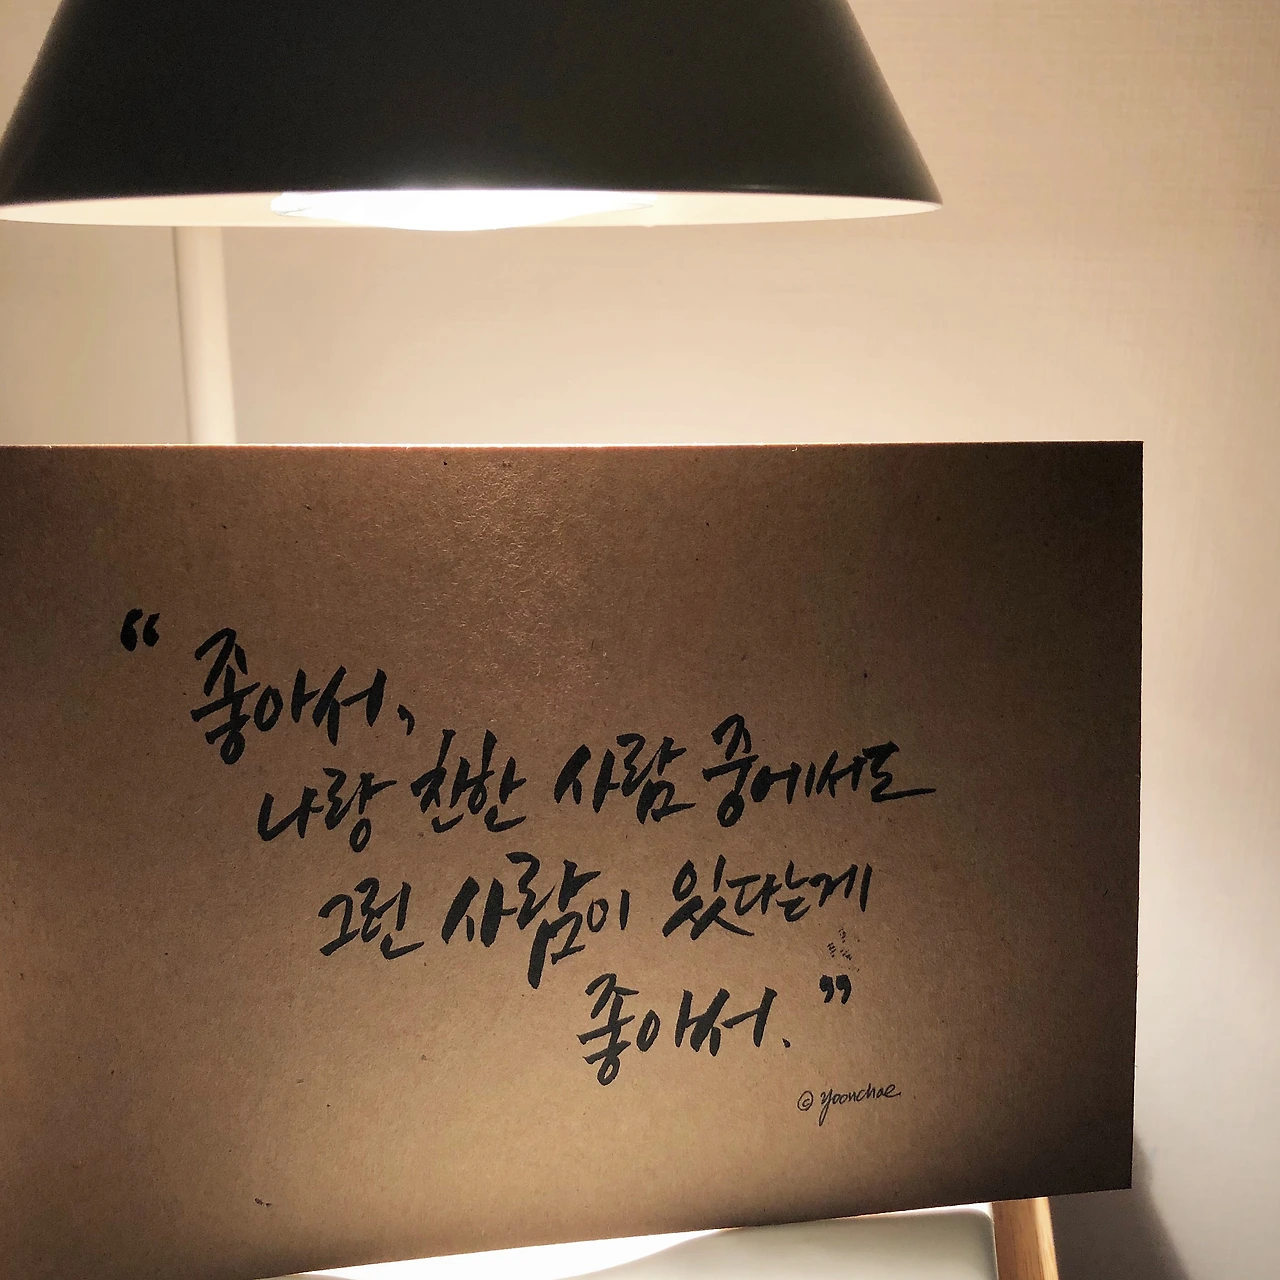 “ 좋아서,
나랑 친한 사람 중에서도
그런 사람이 있다는게
좋아서. ”
© yoonchae